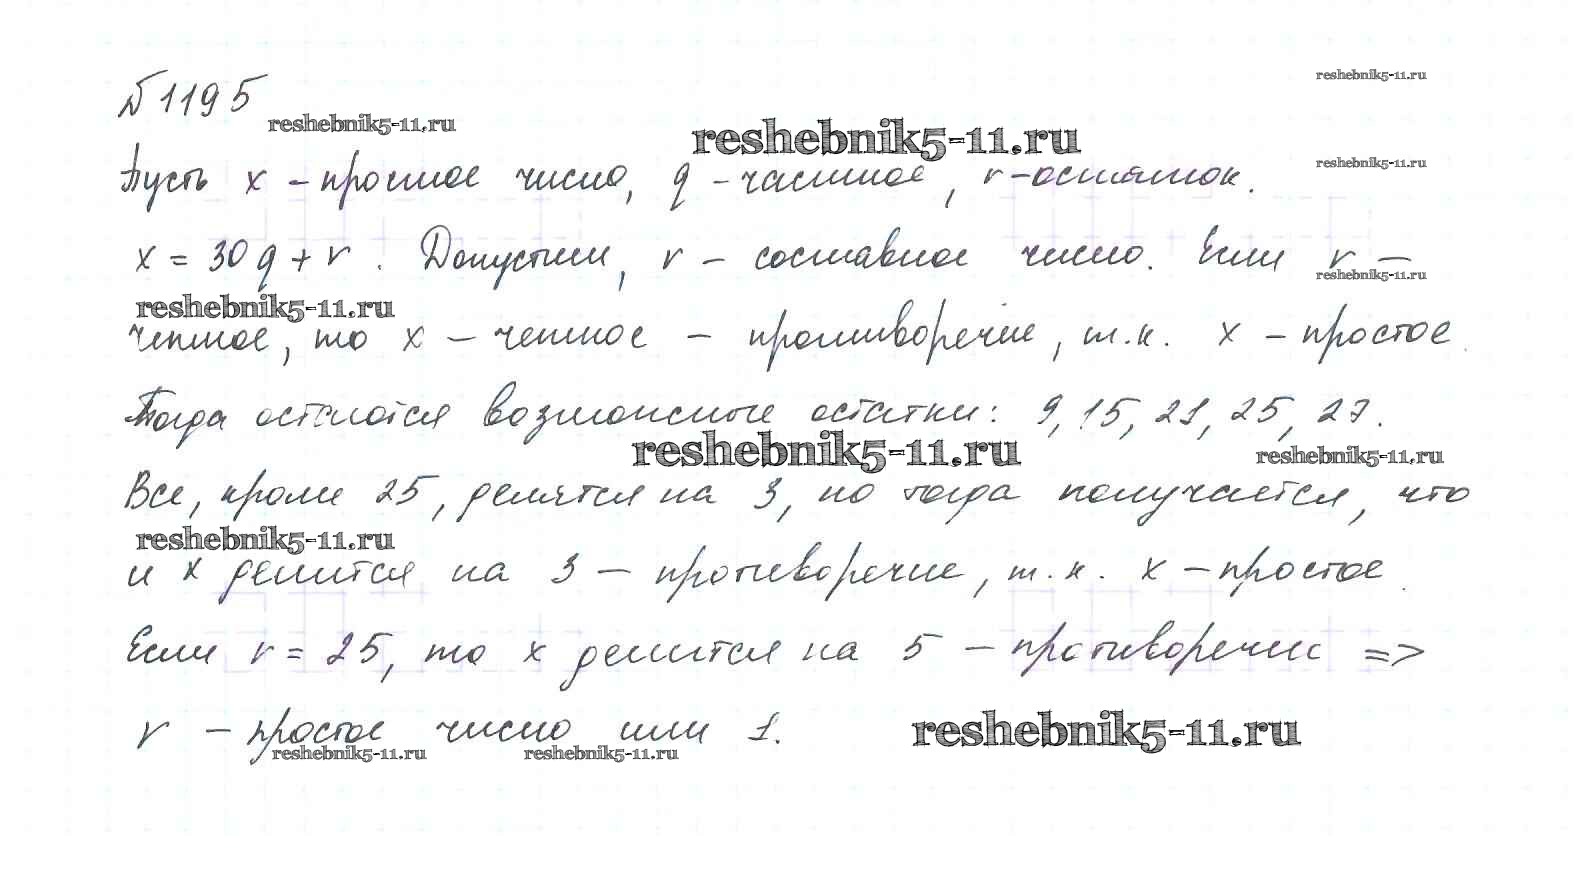 №1195
reshebnik5-11.ru
reshebnik5-11.ru
reshebnik5-11.ru
Пусть x – простое число, q – частное, r – остаток.
reshebnik5-11.ru
x = 30q + r. Допустим, r – составное число. Если r –
reshebnik5-11.ru
reshebnik5-11.ru
четное, то x – четное – противоречие, т.к. x – простое.
Тогда остаются возможные остатки: 9, 15, 21, 25, 27.
reshebnik5-11.ru
reshebnik5-11.ru
Все, кроме 25, делятся на 3, но тогда получается, что
reshebnik5-11.ru
и x делится на 3 – противоречие, т.к. x – простое.
Если r = 25, то x делится на 5 – противоречие =>
r – простое число или 1.
reshebnik5-11.ru
reshebnik5-11.ru
reshebnik5-11.ru